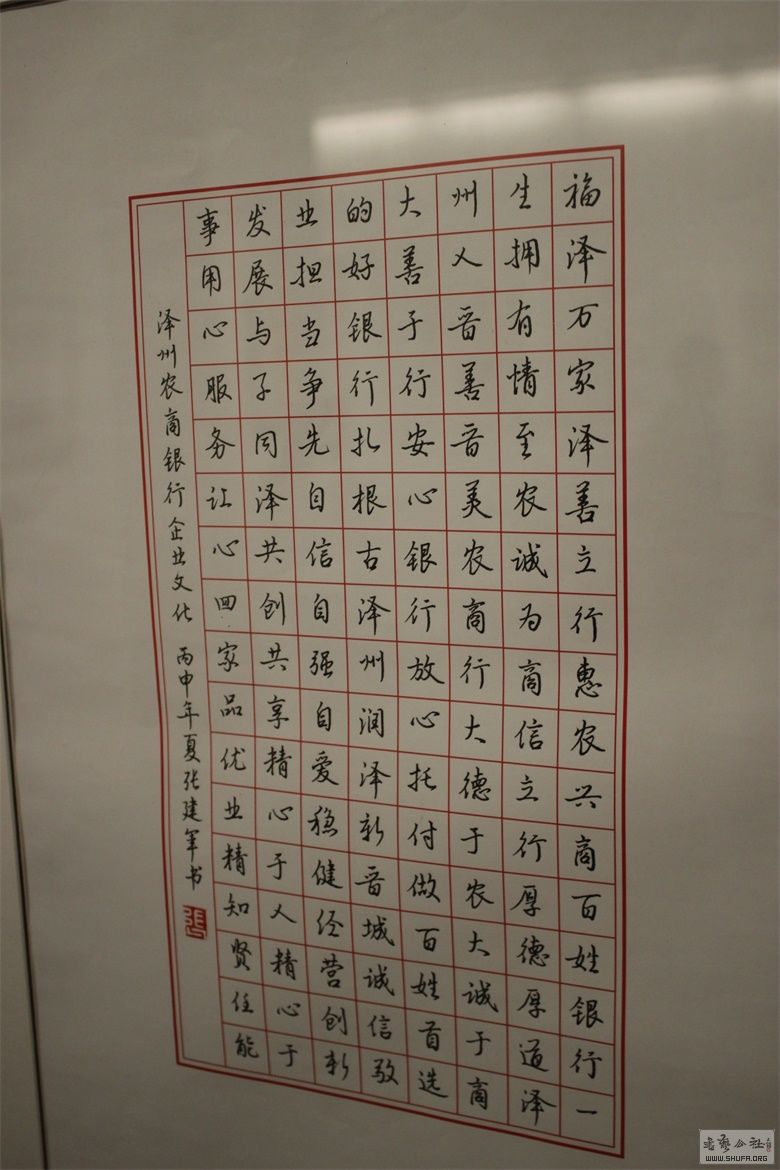 福泽万家泽善立行惠农兴商百姓银行一
生拥有情至农诚为商信立行厚德厚道泽
州人晋善晋美农商行大德于农大诚于商
大善于行安心银行放心托付做百姓首选
的好银行扎根古泽州润泽新晋城诚信敬
业担当争先自信自强自爱稳健经营创新
发展与子同泽共创共享精心于人精心于
事用心服务让心回家品优业精知贤任能
泽州农商银行企业文化 丙申年夏张建军书
WWW.SHUFA.ORG